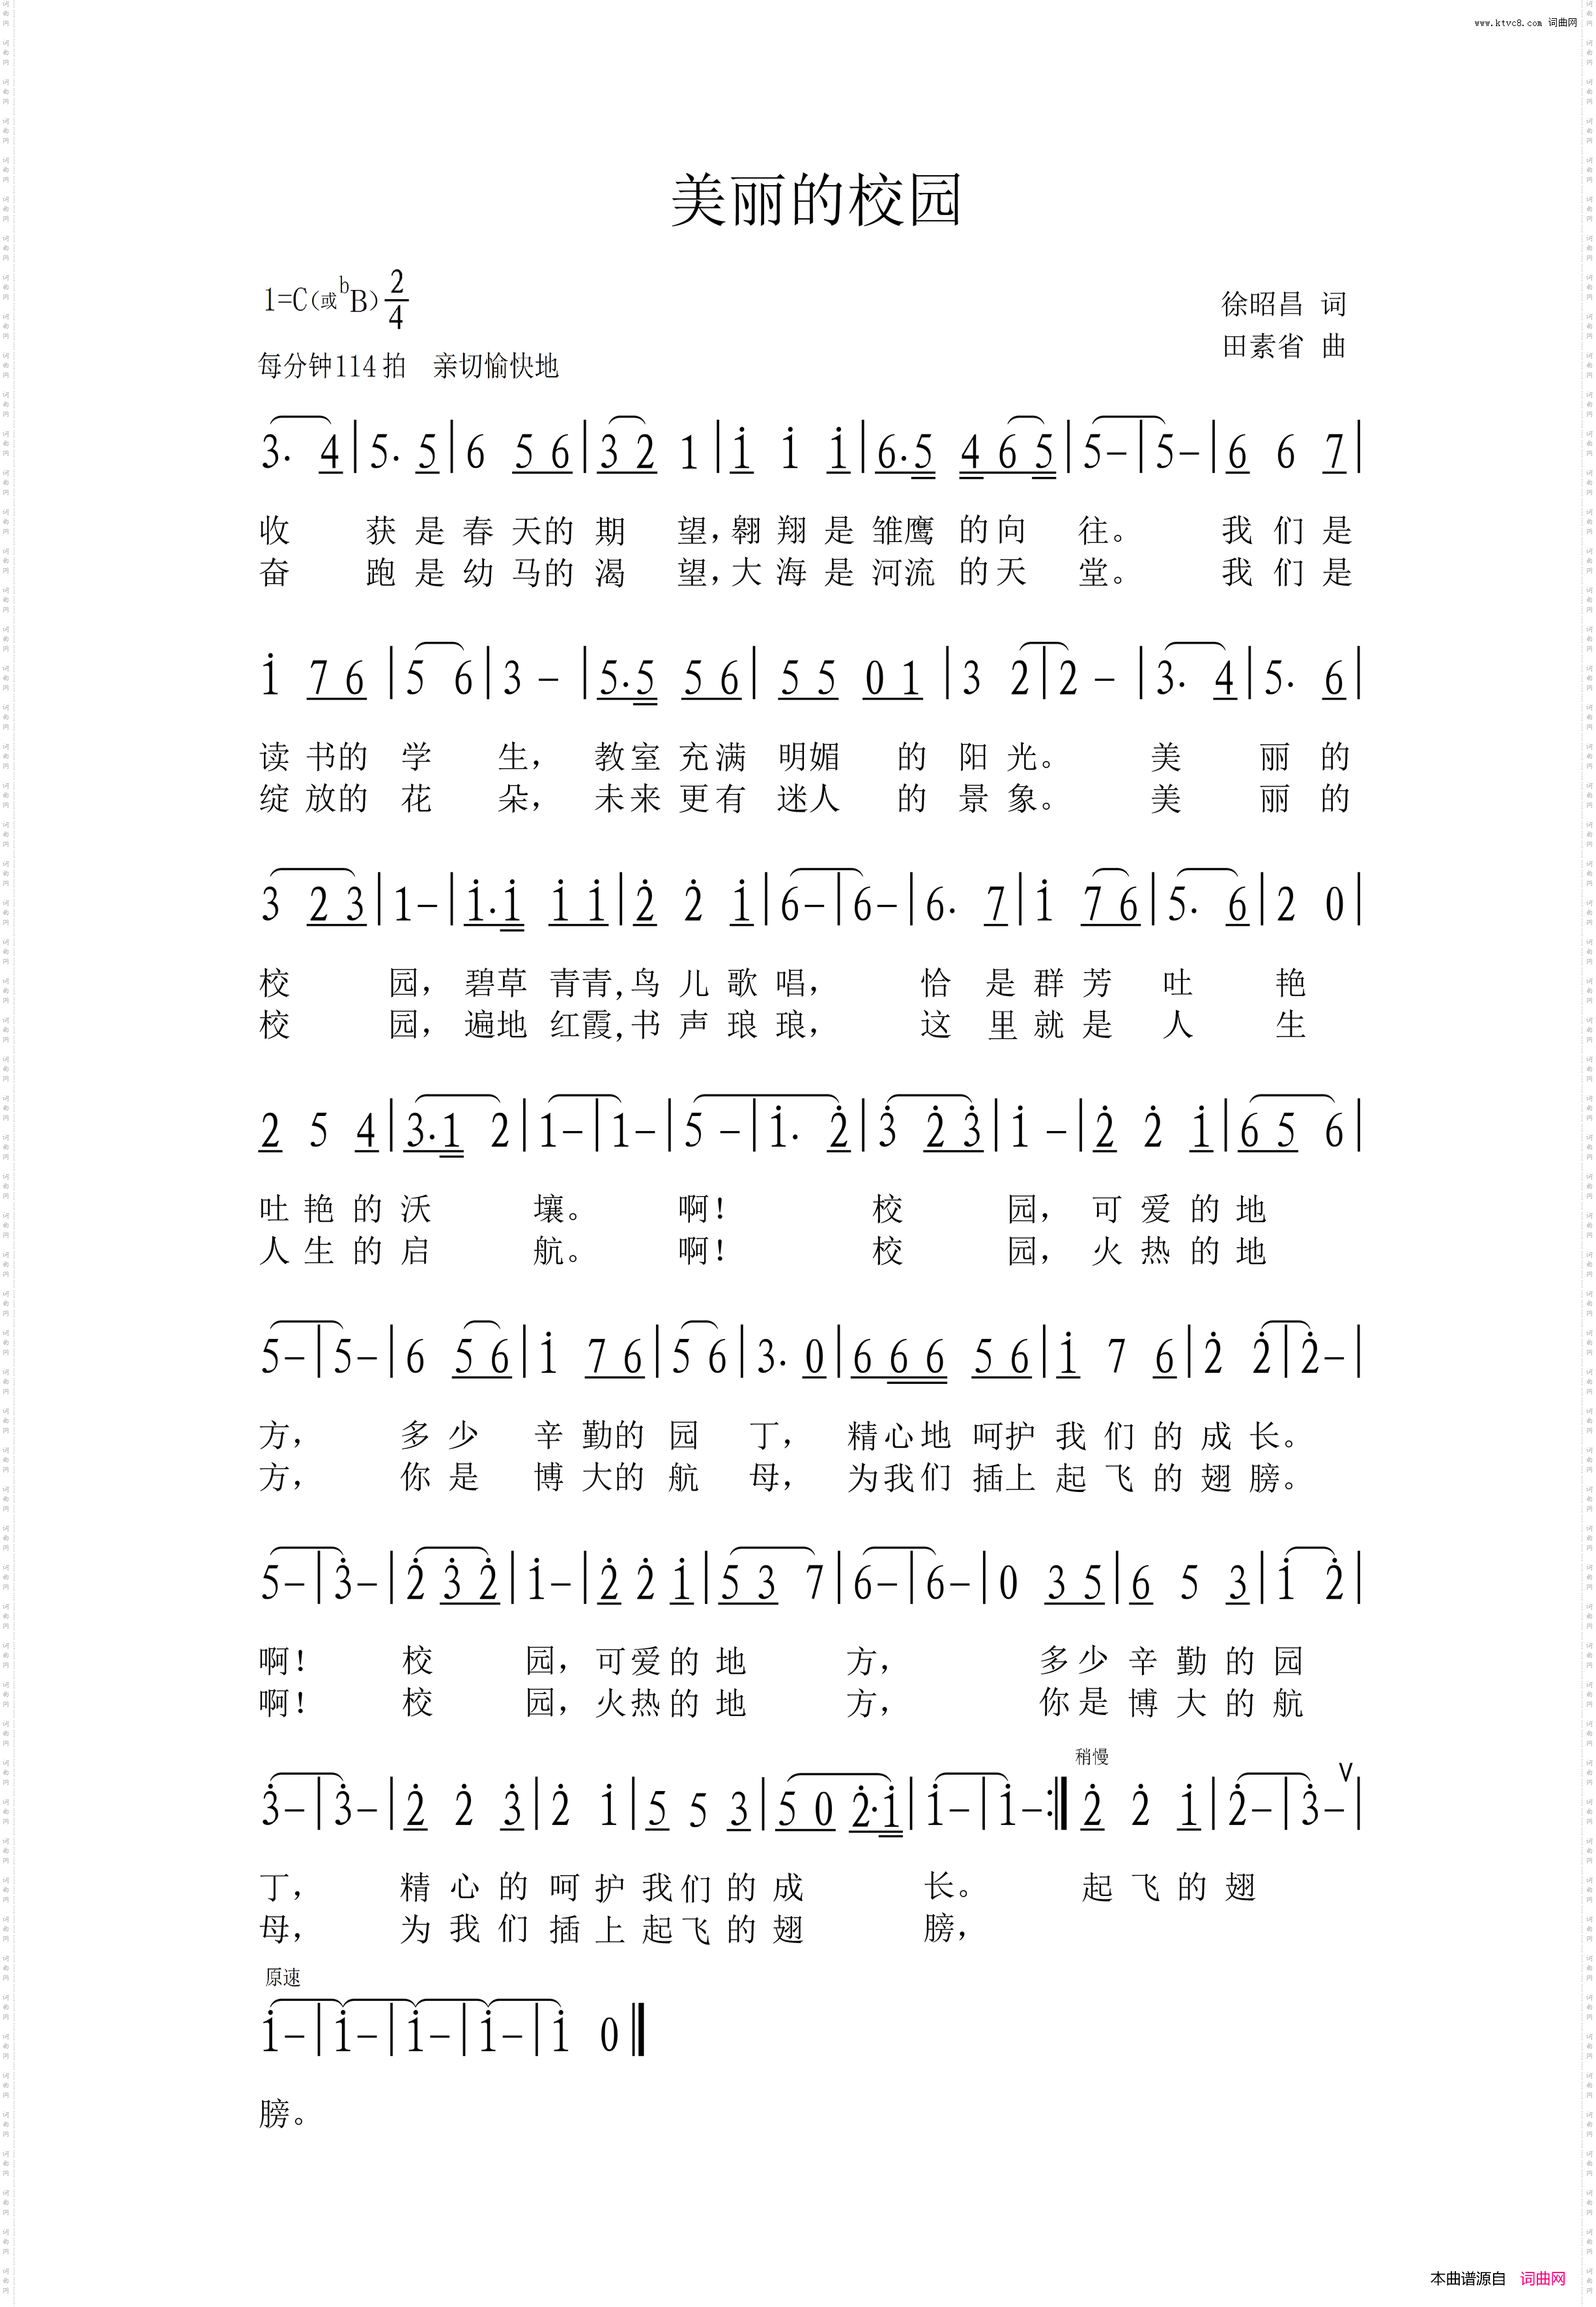 www.ktvc8.com 词曲网
美丽的校园
1=C(或bB) 2/4
徐昭昌 词
每分钟114拍 亲切愉快地
田素省 曲
3. 4 | 5. 5 | 6 5 6 | 3 2 1 | i i i | 6.5 4 6 5 | 5 – | 5 – | 6 6 7 |
收 获 是 春 天的 期 望，翱 翔 是 雏鹰 的向 往。 我 们 是
奋 跑 是 幼 马的 渴 望，大 海 是 河流 的天 堂。 我 们 是
i 7 6 | 5 6 | 3 – | 5.5 5 6 | 5 5 0 1 | 3 2 | 2 – | 3. 4 | 5. 6 |
读 书的 学 生， 教室 充满 明媚 的 阳 光。 美 丽 的
绽 放的 花 朵， 未来 更有 迷人 的 景 象。 美 丽 的
3 2 3 | 1 – | i.i i i | 2 2 i | 6 – | 6 – | 6. 7 | i 7 6 | 5. 6 | 2 0 |
校 园， 碧草 青青，鸟 儿 歌 唱， 恰 是 群 芳 吐 艳
校 园， 遍地 红霞，书 声 琅 琅， 这 里 就 是 人 生
2 5 4 | 3.1 2 | 1 – | 1 – | 5 – | i. 2 | 3 2 3 | i – | 2 2 i | 6 5 6 |
吐 艳 的 沃 壤。 啊！ 校 园， 可 爱 的 地
人 生 的 启 航。 啊！ 校 园， 火 热 的 地
5 – | 5 – | 6 5 6 | i 7 6 | 5 6 | 3. 0 | 6 6 6 5 6 | i 7 6 | 2 2 | 2 – |
方， 多 少 辛 勤的 园 丁， 精心地 呵护 我 们 的 成 长。
方， 你 是 博 大的 航 母， 为我们 插上 起 飞 的 翅 膀。
5 – | 3 – | 2 3 2 | i – | 2 2 i | 5 3 7 | 6 – | 6 – | 0 3 5 | 6 5 3 | i 2 |
啊！ 校 园，可爱的 地 方， 多少 辛 勤 的 园
啊！ 校 园，火热的 地 方， 你是 博 大 的 航
稍慢
3 – | 3 – | 2 2 3 | 2 i | 5 5 3 | 5 0 2.i | i – | i – :| 2 2 i | 2 – | 3 – |
丁， 精 心 的 呵 护 我 们 的 成 长。 起 飞 的 翅
母， 为 我 们 插 上 起 飞 的 翅 膀，
原速
i – | i – | i – | i – | i 0 |
膀。
本曲谱源自 词曲网